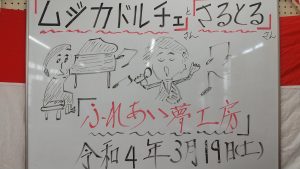 「ムジカドルチェさんと「さるとる」さん
「ふれあい夢工房」
令和4年3月19日(土)